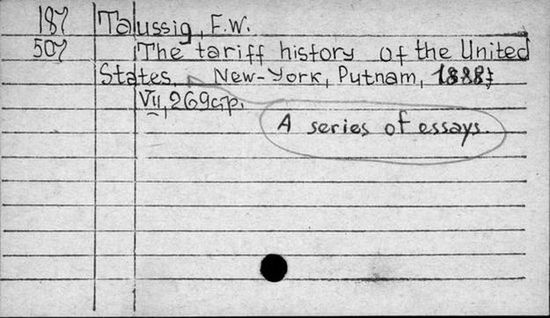 187 Taussig, F.W.
507 The tariff history of the United
States. New-York, Putnam, 1888;
VII, 269 c.p.
A series of essays.